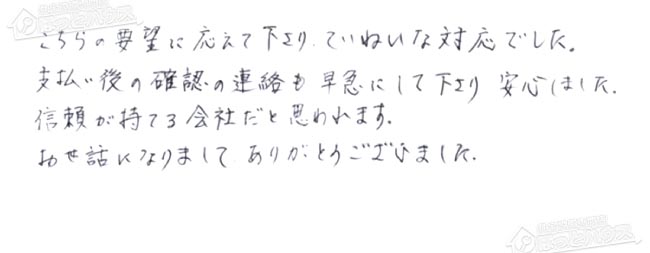 こちらの要望に応えて下さり、ていねいな対応でした。
支払い後の確認の連絡も早急にして下さり 安心しました。
信頼が持てる会社だと思われます。
お世話になりまして ありがとうございました。